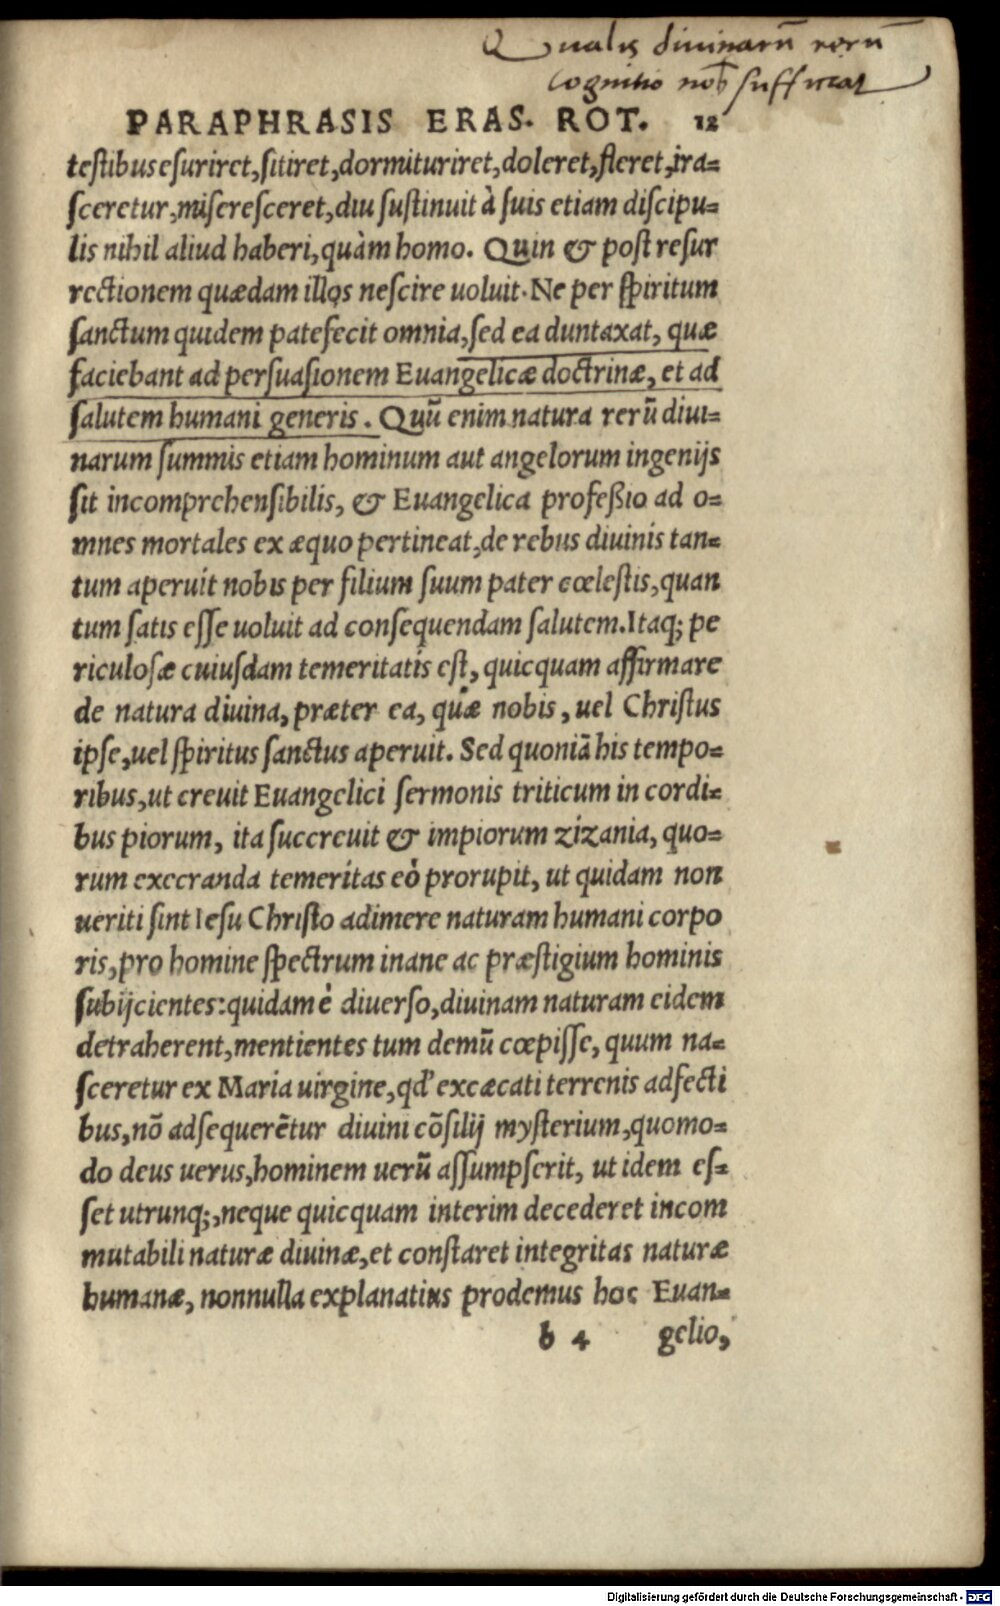 Qualis diuinarũ rerũ
cognitio nob sufficiat
PARAPHRASIS ERAS. ROT. 12
testibus esuriret, sitiret, dormituriret, doleret, fleret, ira=
sceretur, miseresceret, diu sustinuit à suis etiam discipu=
lis nihil aliud haberi, quàm homo. Quin & post resur
rectionem quædam illos nescire uoluit. Ne per spiritum
sanctum quidem patefecit omnia, sed ea duntaxat, quæ
faciebant ad persuasionem Euangelicæ doctrinæ, et ad
salutem humani generis. Quũ enim natura rerũ diui=
narum summis etiam hominum aut angelorum ingenijs
sit incomprehensibilis, & Euangelica profeßio ad o=
mnes mortales ex æquo pertineat, de rebus diuinis tan=
tum aperuit nobis per filium suum pater cœlestis, quan
tum satis esse uoluit ad consequendam salutem. Itaq; pe
riculosæ cuiusdam temeritatis est, quicquam affirmare
de natura diuina, præter ea, quæ nobis, uel Christus
ipse, uel spiritus sanctus aperuit. Sed quoniã his tempo=
ribus, ut creuit Euangelici sermonis triticum in cordi=
bus piorum, ita succreuit & impiorum zizania, quo=
rum execranda temeritas eò prorupit, ut quidam non
ueriti sint Iesu Christo adimere naturam humani corpo
ris, pro homine spectrum inane ac præstigium hominis
subijcientes: quidam è diuerso, diuinam naturam eidem
detraherent, mentientes tum demũ cœpisse, quum na=
sceretur ex Maria uirgine, qd' excæcati terrenis adfecti
bus, nõ adsequerẽtur diuini cõsilij mysterium, quomo=
do deus uerus, hominem uerũ assumpserit, ut idem es=
set utrunq;, neque quicquam interim decederet incom
mutabili naturæ diuinæ, et constaret integritas naturæ
humanæ, nonnulla explanatius prodemus hoc Euan=
b 4 gelio,
Digitalisierung gefördert durch die Deutsche Forschungsgemeinschaft - DFG